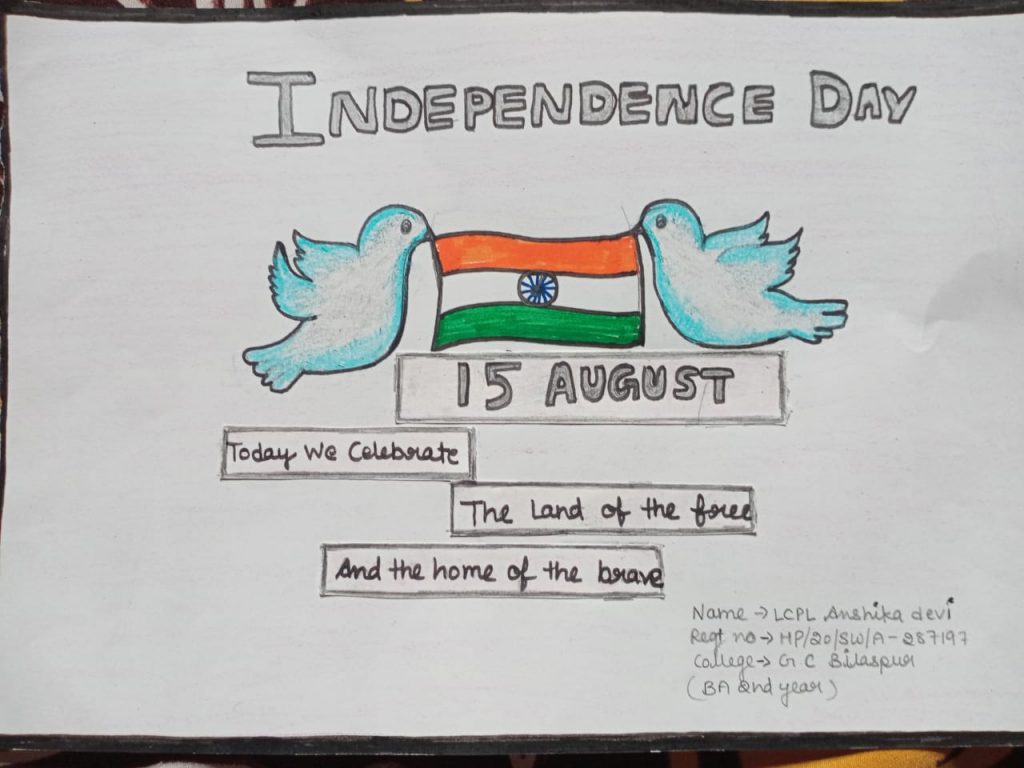 INDEPENDENCE DAY
15 AUGUST
Today We Celebrate
The Land of the free
And the home of the brave
Name → LCPL Anshika devi
Regt no → HP/20/SW/A-287197
College → G C Bilaspur
(BA 2nd year)